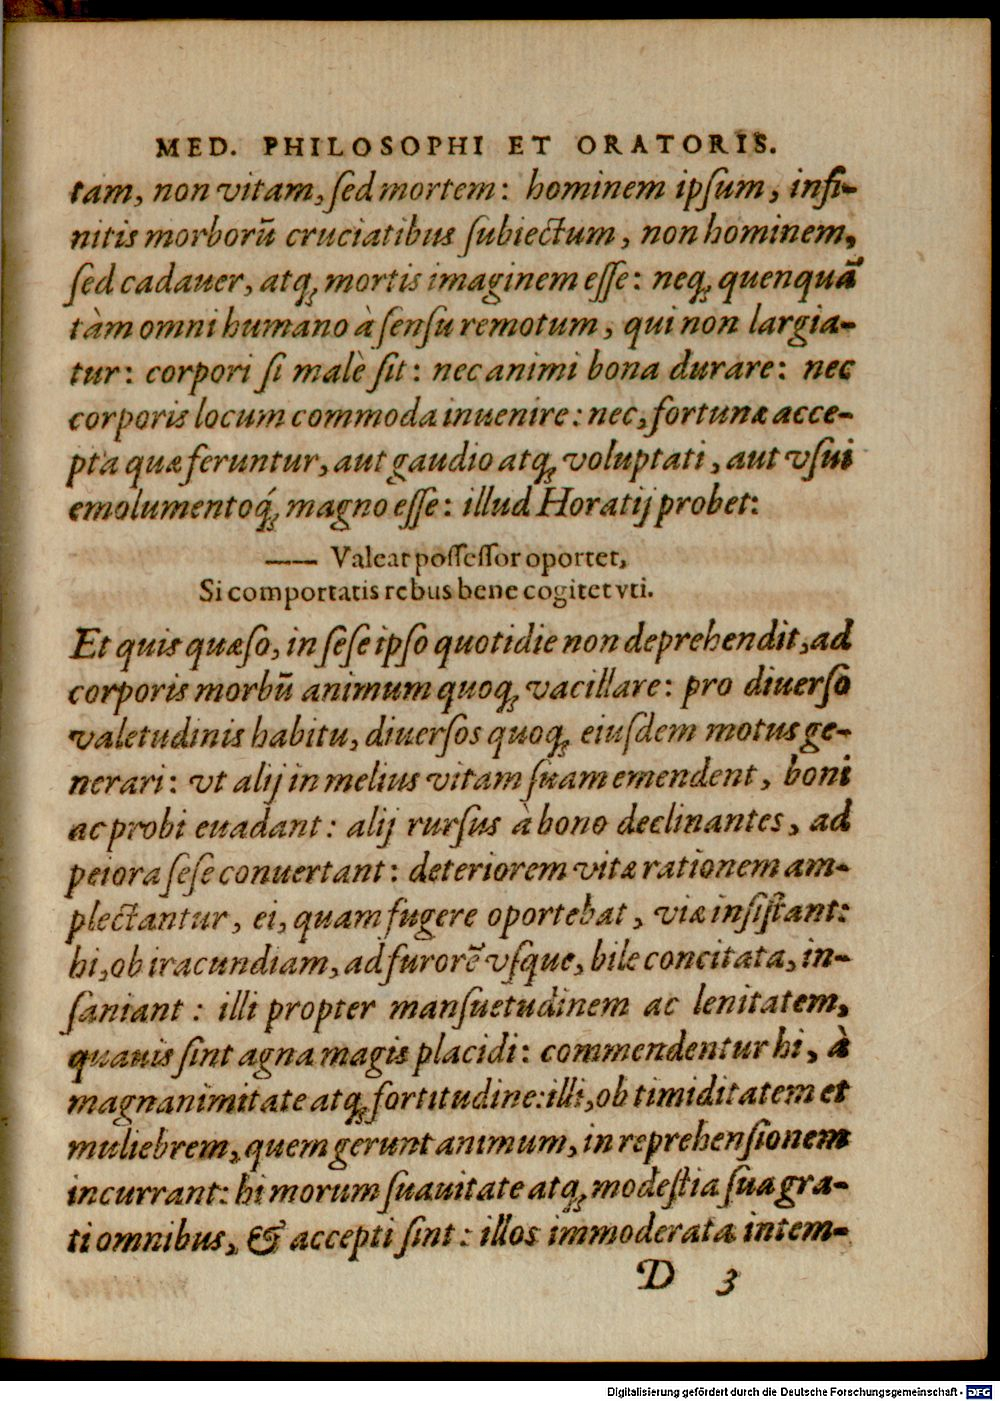 MED. PHILOSOPHI ET ORATORIS.
tam, non vitam, ſed mortem: hominem ipſum, infi-
nitis morborũ cruciatibus ſubiectum, non hominem,
ſed cadauer, atq; mortis imaginem eſſe: neq; quenquã
tàm omni humano à ſenſu remotum, qui non largia-
tur: corpori ſi malè ſit: nec animi bona durare: nec
corporis locum commoda inuenire: nec, fortunæ acce-
pta quæ feruntur, aut gaudio atq; voluptati, aut vſui
emolumentoq́; magno eſſe: illud Horatij probet:
—— Valeat poſſeſſor oportet,
Si comportatis rebus bene cogitet vti.
Et quis quæſo, in ſeſe ipſo quotidie non deprehendit, ad
corporis morbũ animum quoq; vacillare: pro diuerſo
valetudinis habitu, diuerſos quoq; eiuſdem motus ge-
nerari: vt alij in melius vitam ſuam emendent, boni
ac probi euadant: alij rurſus à bono declinantes, ad
peiora ſeſe conuertant: deteriorem vitæ rationem am-
plectantur, ei, quam fugere oportebat, viæ inſiſtant:
hi, ob iracundiam, ad furorẽ vſque, bile concitata, in-
ſaniant: illi propter manſuetudinem ac lenitatem,
quauis ſint agna magis placidi: commendentur hi, à
magnanimitate atq; fortitudine: illi, ob timiditatem et
muliebrem, quem gerunt animum, in reprehenſionem
incurrant: hi morum ſuauitate atq; modeſtia ſua gra-
ti omnibus, & accepti ſint: illos immoderata intem-
D 3
Digitalisierung gefördert durch die Deutsche Forschungsgemeinschaft - DFG